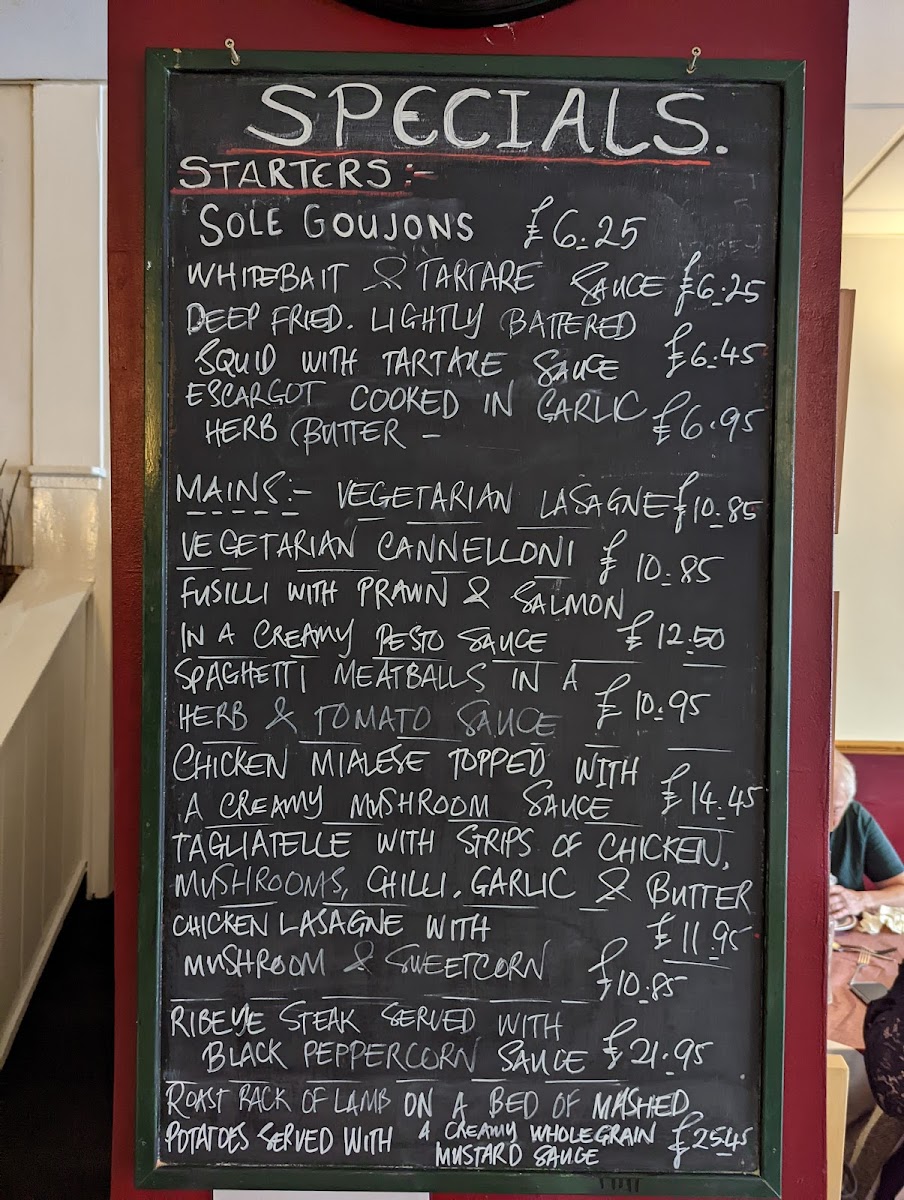 SPECIALS.
STARTERS:-
SOLE GOUJONS £6.25
WHITEBAIT & TARTARE SAUCE £6.25
DEEP FRIED. LIGHTLY BATTERED
SQUID WITH TARTARE SAUCE £6.45
ESCARGOT COOKED IN GARLIC
HERB BUTTER - £6.95
MAINS:- VEGETARIAN LASAGNE £10.85
VEGETARIAN CANNELLONI £10.85
FUSILLI WITH PRAWN & SALMON
IN A CREAMY PESTO SAUCE £12.50
SPAGHETTI MEATBALLS IN A
HERB & TOMATO SAUCE £10.95
CHICKEN MIALESE TOPPED WITH
A CREAMY MUSHROOM SAUCE £14.45
TAGLIATELLE WITH STRIPS OF CHICKEN,
MUSHROOMS, CHILLI, GARLIC & BUTTER
£11.95
CHICKEN LASAGNE WITH
MUSHROOM & SWEETCORN £10.85
RIBEYE STEAK SERVED WITH
BLACK PEPPERCORN SAUCE £21.95
ROAST RACK OF LAMB ON A BED OF MASHED
POTATOES SERVED WITH A CREAMY WHOLEGRAIN
MUSTARD SAUCE £25.45